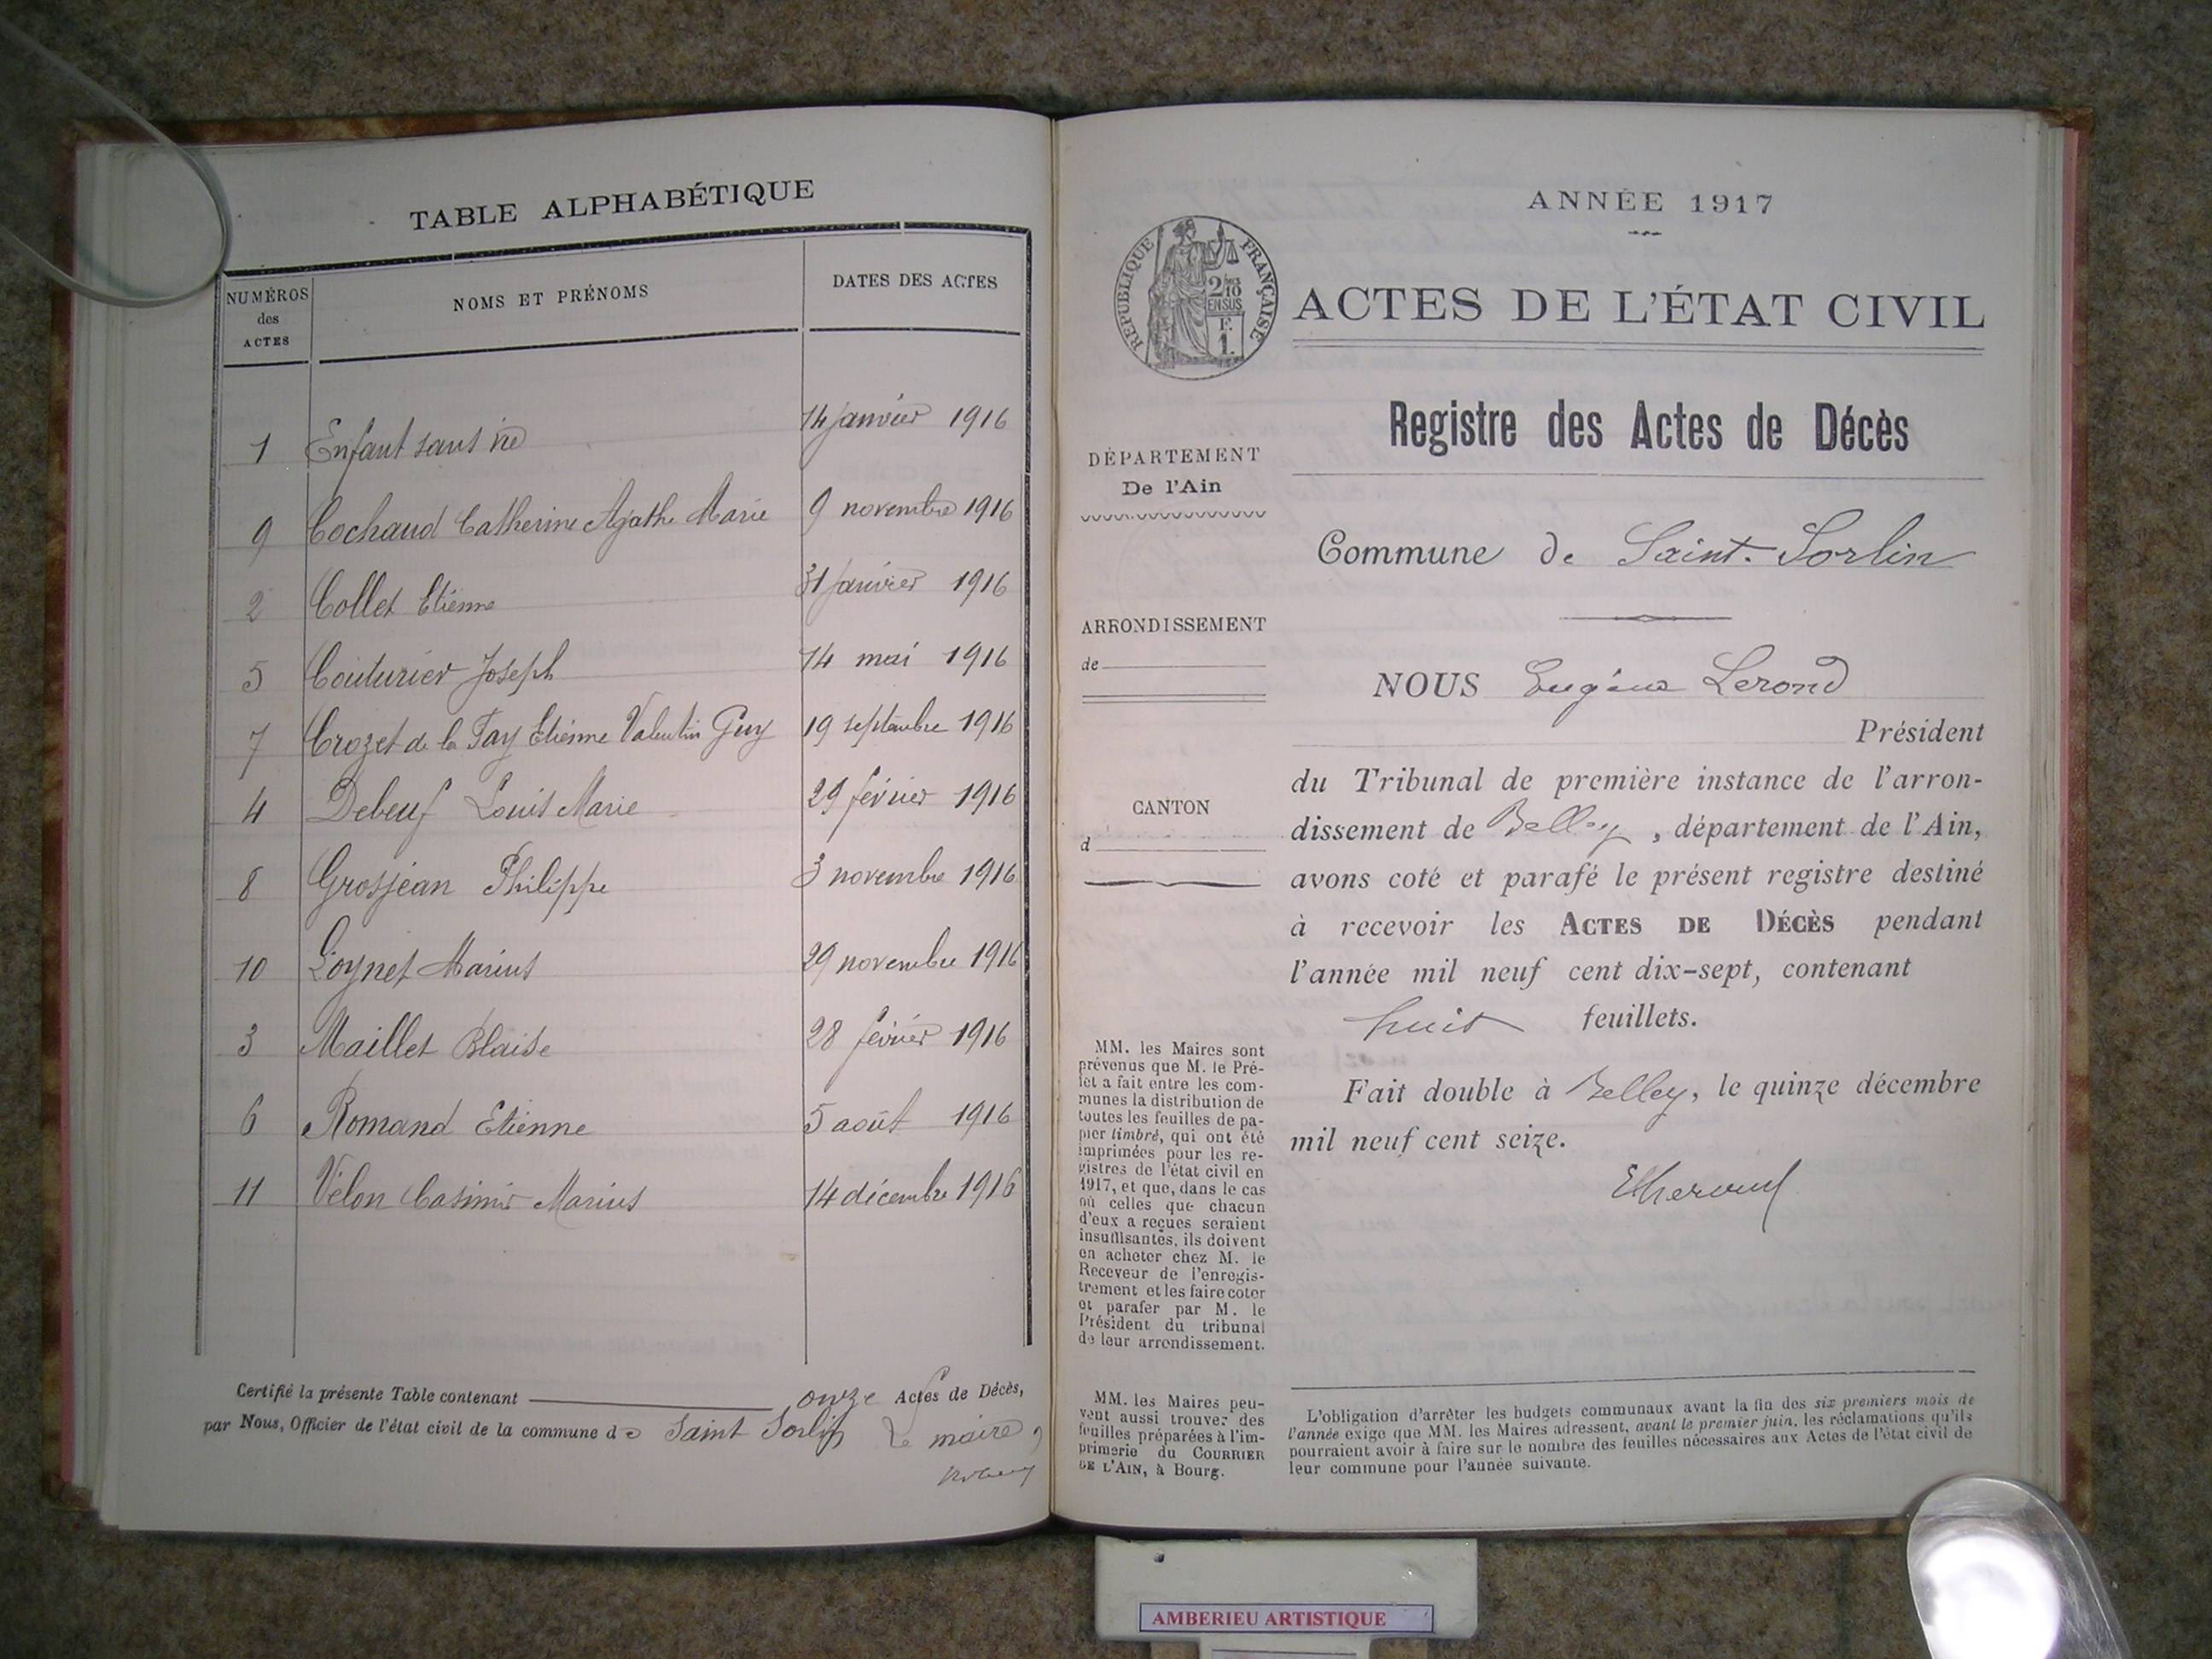 TABLE ALPHABÉTIQUE
NUMÉROS des ACTES
NOMS ET PRÉNOMS
DATES DES ACTES
1 Enfant sans vie 14 janvier 1916
9 Cochaud Catherine Agathe Marie 9 novembre 1916
2 Collet Etienne 31 janvier 1916
5 Couturier Joseph 14 mai 1916
7 Crozet de la Fay Etienne Valentin Guy 19 septembre 1916
4 Debeuf Louis Marie 29 février 1916
8 Grosjean Philippe 3 novembre 1916
10 Loynet Marius 29 novembre 1916
3 Maillet Blaise 28 février 1916
6 Romand Etienne 5 août 1916
11 Vélon Casimir Marius 14 décembre 1916
Certifié la présente Table contenant onze Actes de Décès,
par Nous, Officier de l'état civil de la commune de Saint Sorlin Le maire,
ANNÉE 1917
RÉPUBLIQUE FRANÇAISE
2 10 EN SUS
F. 1.
ACTES DE L'ÉTAT CIVIL
Registre des Actes de Décès
DÉPARTEMENT
De l'Ain
ARRONDISSEMENT
de
CANTON
d
MM. les Maires sont
prévenus que M. le Pré-
fet a fait entre les com-
munes la distribution de
toutes les feuilles de pa-
pier timbré, qui ont été
imprimées pour les re-
gistres de l'état civil en
1917, et que, dans le cas
où celles que chacun
d'eux a reçues seraient
insuffisantes, ils doivent
en acheter chez M. le
Receveur de l'enregis-
trement et les faire coter
et parafer par M. le
Président du tribunal
de leur arrondissement.
MM. les Maires peu-
vent aussi trouver des
feuilles préparées à l'im-
primerie du COURRIER
DE L'AIN, à Bourg.
Commune de Saint-Sorlin
NOUS Eugène Lerond
Président
du Tribunal de première instance de l'arron-
dissement de Belley, département de l'Ain,
avons coté et parafé le présent registre destiné
à recevoir les ACTES DE DÉCÈS pendant
l'année mil neuf cent dix-sept, contenant
huit feuillets.
Fait double à Belley, le quinze décembre
mil neuf cent seize.
L'obligation d'arrêter les budgets communaux avant la fin des six premiers mois de
l'année exige que MM. les Maires adressent, avant le premier juin, les réclamations qu'ils
pourraient avoir à faire sur le nombre des feuilles nécessaires aux Actes de l'état civil de
leur commune pour l'année suivante.
AMBERIEU ARTISTIQUE